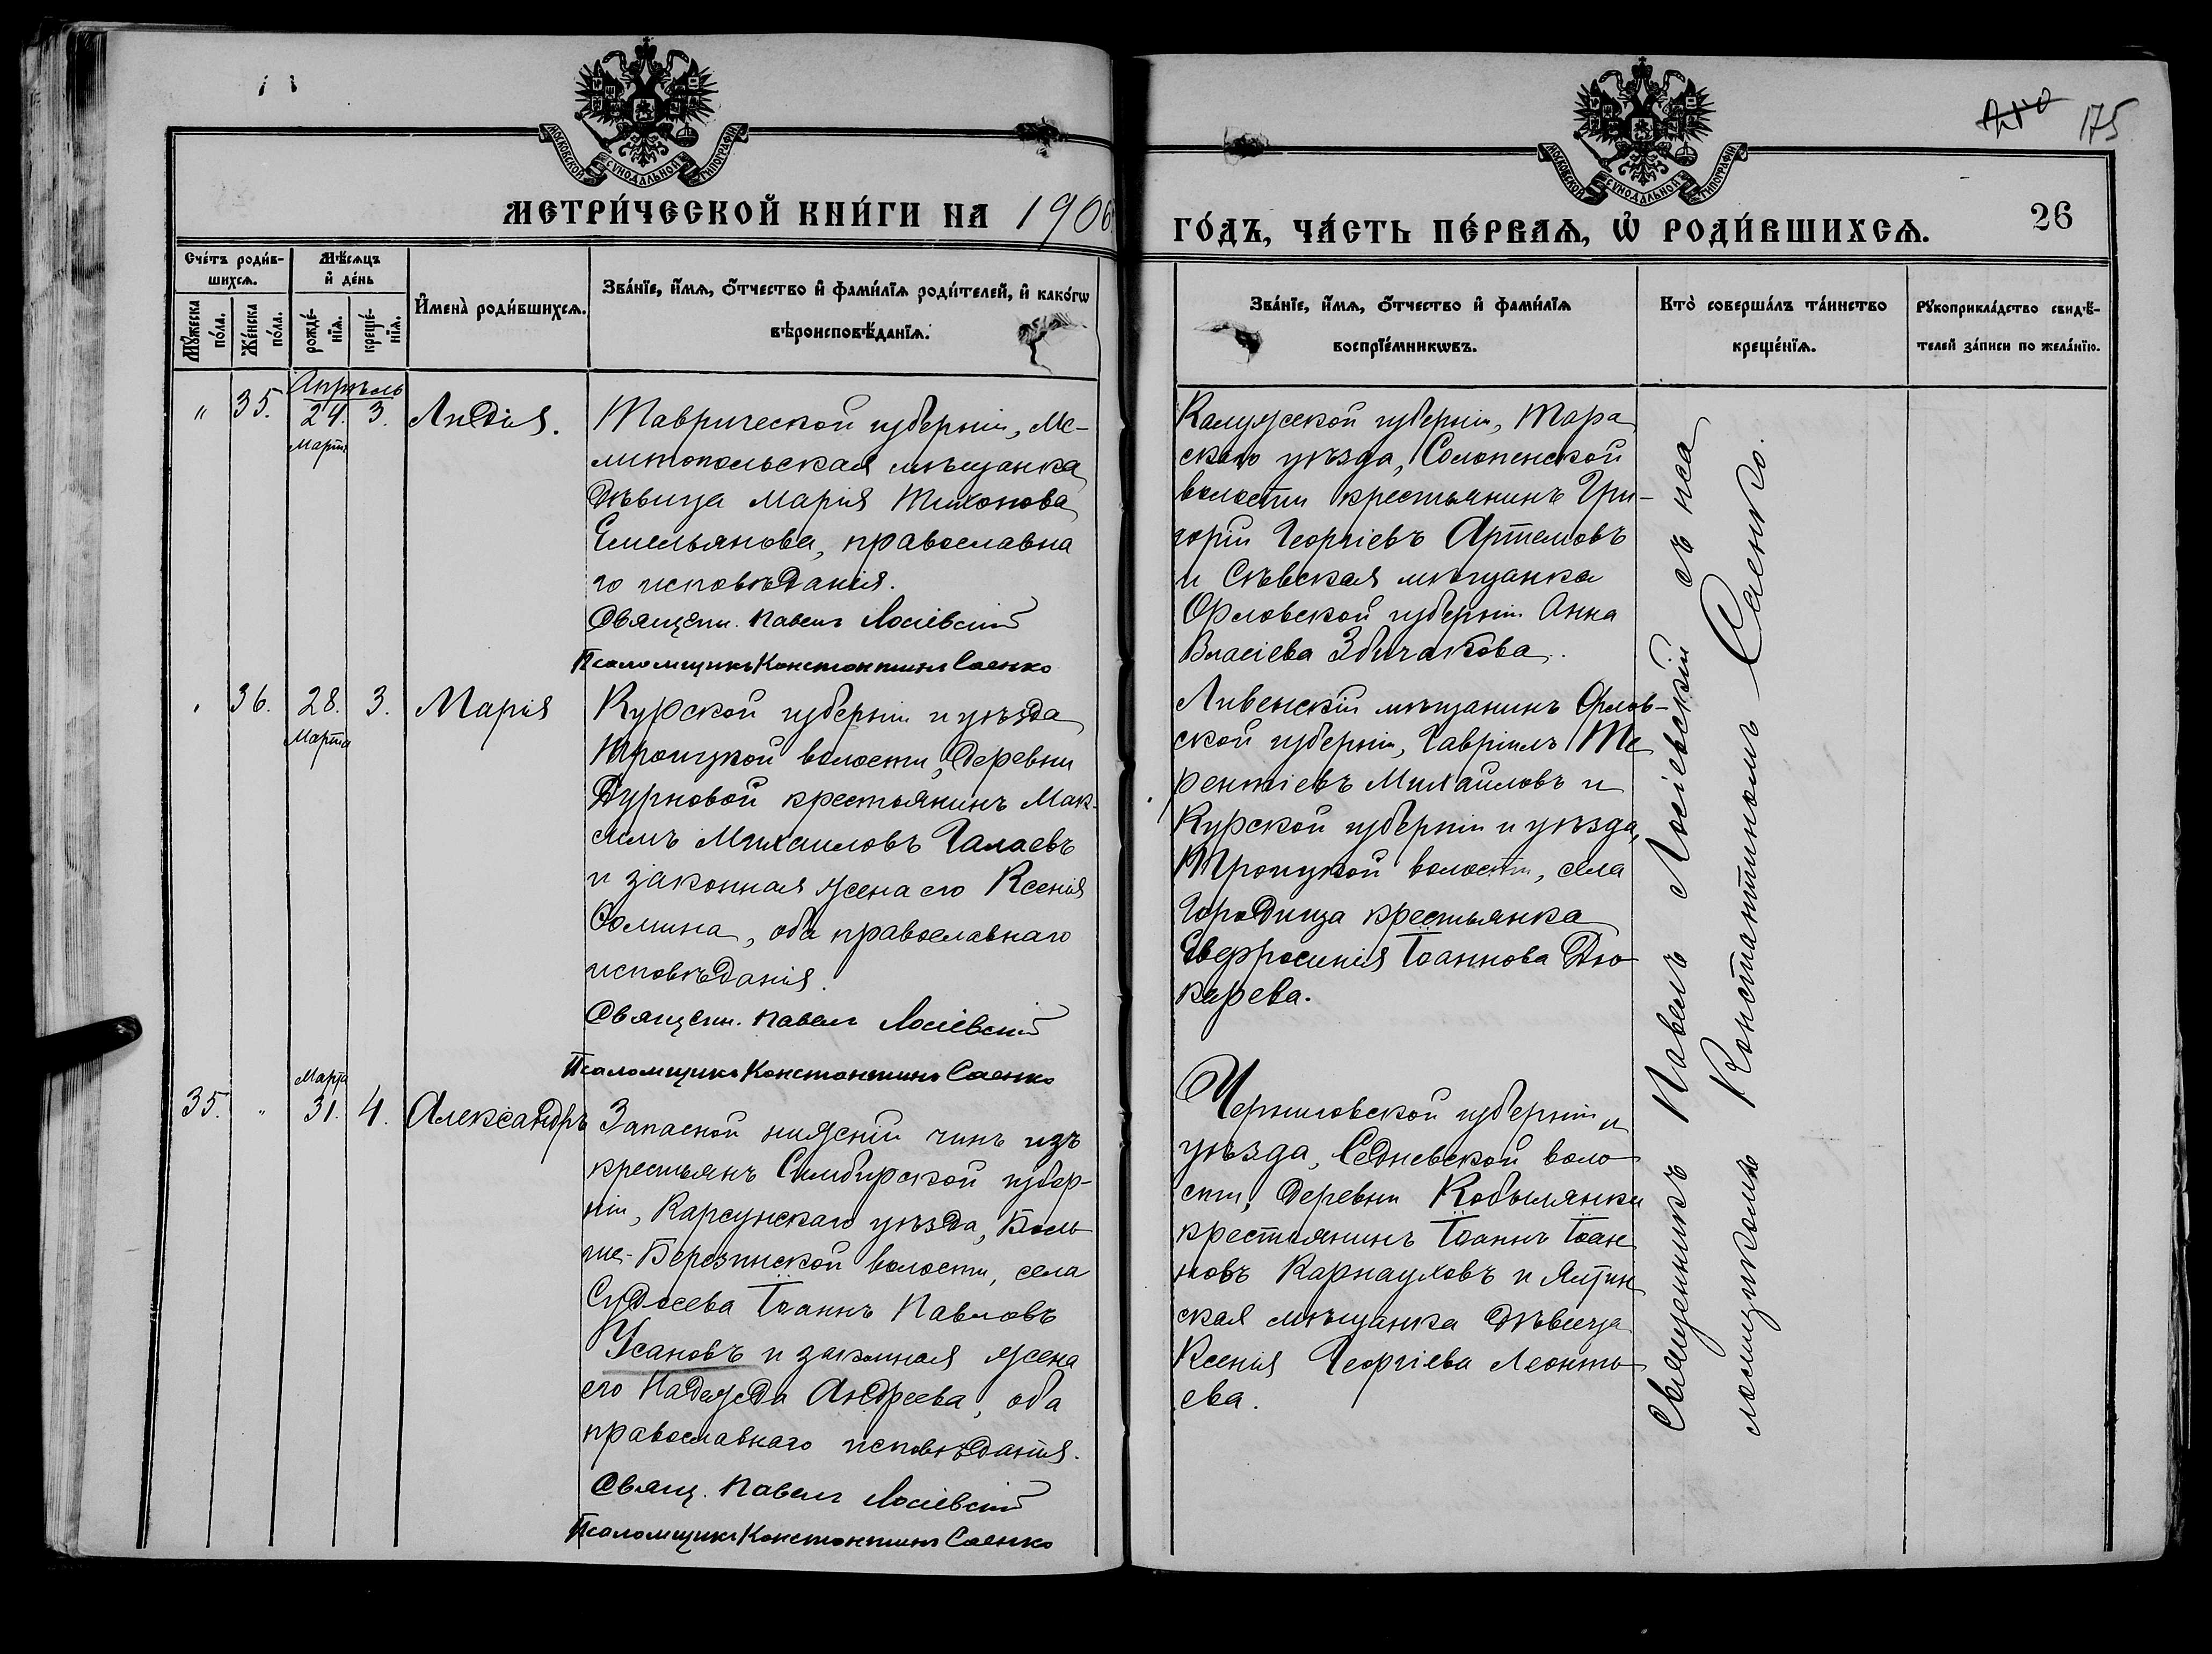 175
МОСКОВСКОЙ СѴНОДАЛЬНОЙ ТИПОГРАФІИ
МОСКОВСКОЙ СѴНОДАЛЬНОЙ ТИПОГРАФІИ
МЕТРИ́ЧЕСКОЙ КНИ́ГИ НА 1906
ГО́ДЪ, ЧА́СТЬ ПЕ́РВАѦ, Ѡ҆ РОДИ́ВШИХСѦ.
26
Сче́тъ роди́в-
шихсѧ.
Мꙋ́жеска
по́ла.
Же́нска
по́ла.
Мѣ́сѧцъ
и҆ де́нь
рожде́-
нїѧ.
креще́-
нїѧ.
И҆мена̀ роди́вшихсѧ.
Зва́нїе, и҆́мѧ, ѻ҆́тчество и҆ фами́лїѧ роди́телей, и҆ како́гѡ
вѣроисповѣ́данїѧ.
Зва́нїе, и҆́мѧ, ѻ҆́тчество и҆ фами́лїѧ
воспрїе́мникѡвъ.
Кто̀ соверша́лъ та́инство
креще́нїѧ.
Рꙋкоприкла́дство свидѣ́-
телей за́писи по жела́нїю.
Апрѣль
" 35. 24. 3. Лидія.
Марта
Таврической губерніи, Ме-
литопольская мѣщанка
дѣвица Марія Тихонова
Емельянова, православна
го исповѣданія.
Священ. Павелъ Лосіевскій
Псаломщикъ Константинъ Саенко
Калужской губерніи, Тара
скаго уѣзда, Солопенской
волости крестьянинъ Гри-
горій Георгіевъ Артемовъ
и Сѣвская мѣщанка
Орловской губерніи Анна
Власіева Збичакова.
" 36. 28. 3. Марія
Марта
Курской губерніи и уѣзда
Троицкой волости, деревни
Дурновой крестьянинъ Мак-
симъ Михаиловъ Галаевъ
и законная жена его Ксенія
Ѳомина, оба православнаго
исповѣданія.
Священ. Павелъ Лосіевскій
Псаломщикъ Константинъ Саенко
Ливенскій мѣщанинъ Орлов-
ской губерніи, Гавріилъ Те
рентіевъ Михаиловъ и
Курской губерніи и уѣзда,
Троицкой волости, села
Городища крестьянка
Евфросинія Іоаннова Дю
карева.
Марта
35. " 31. 4. Александръ
Запасной нижній чинъ изъ
крестьянъ Симбирской губер-
ніи, Карсунскаго уѣзда, Боль
ше-Березинской волости, села
Судосева Іоаннъ Павловъ
Усановъ и законная жена
его Надежда Андреева, оба
православнаго исповѣданія.
Свящ. Павелъ Лосіевскій
Псаломщикъ Константинъ Саенко
Черниговской губерніи и
уѣзда, Седневской воло
сти, деревни Кобылянки
крестьянинъ Іоаннъ Іоан
новъ Карнауховъ и Ялтин
ская мѣщанка дѣвица
Ксенія Георгіева Леонть
ева.
Священникъ Павелъ Лосіевскій съ пса
ломщикомъ Константиномъ Саенко.